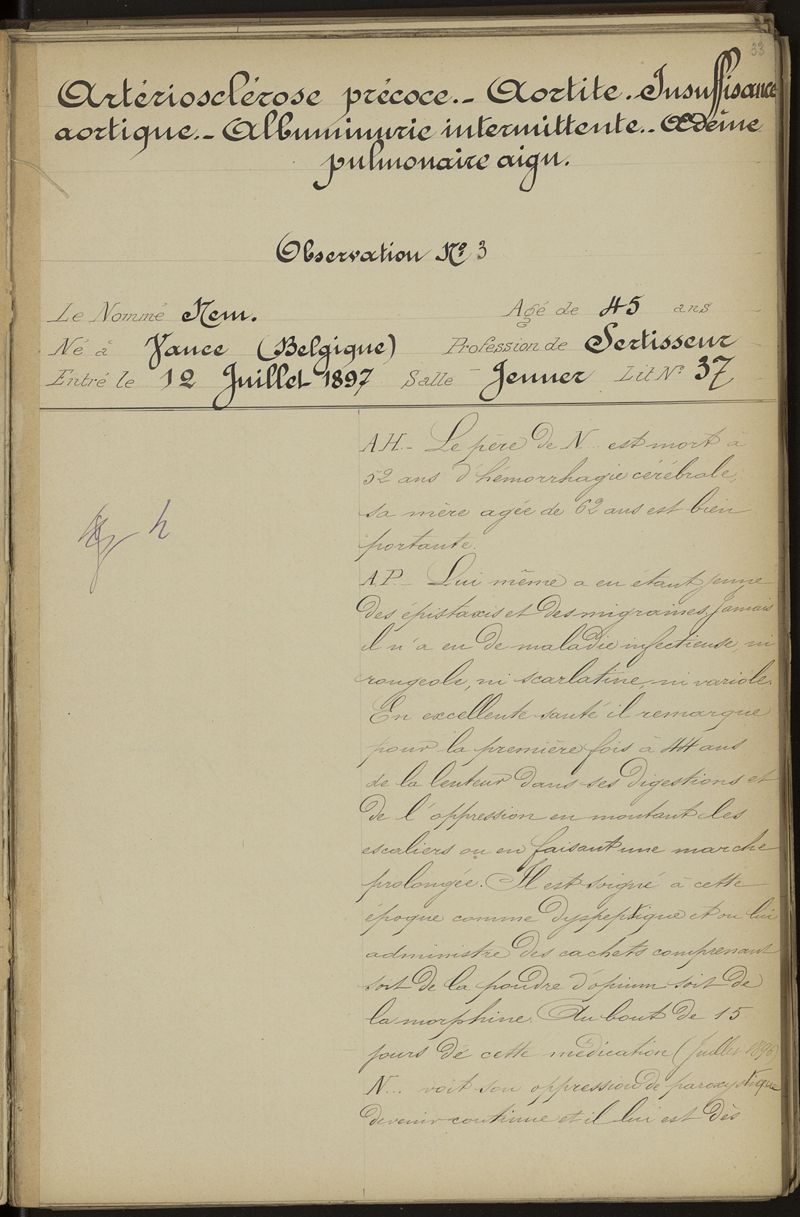 33
Artériosclérose précoce._ Aortite. Insuffisance
aortique._ Albuminurie intermittente._ Œdème
pulmonaire aigu.
Observation No. 3
Le Nommé Nem. Agé de 45 ans
Né à Vance (Belgique) Profession de Sertisseur
Entré le 12 Juillet 1897 Salle Jenner Lit No. 37
AH._ Le père de N... est mort à
52 ans d'hémorrhagie cérébrale,
sa mère agée de 62 ans est bien
portante.
AP._ Lui même a eu étant jeune
des épistaxis et des migraines. Jamais
il n'a eu de maladie infectieuse, ni
rougeole, ni scarlatine, ni variole.
En excellente santé il remarque
pour la première fois à 44 ans
de la lenteur dans ses digestions et
de l'oppression en montant les
escaliers ou en faisant une marche
prolongée. Il est soigné à cette
époque comme dyspeptique et on lui
administre des cachets comprenant
soit de la poudre d'opium soit de
la morphine. Au bout de 15
jours de cette médication (Juillet 1896)
N... voit son oppression de paroxystique
devenir continue et il lui est dès